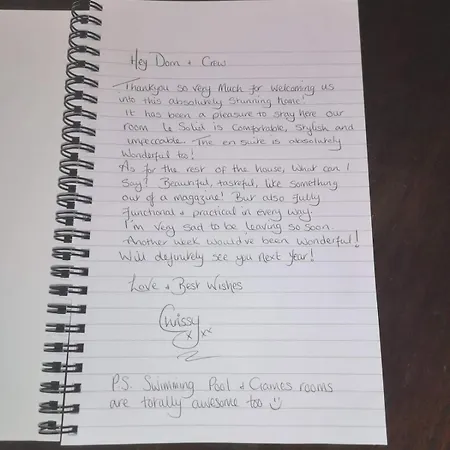 Hey Dom + Crew
Thankyou so very Much for welcoming us
into this absolutely stunning home!
It has been a pleasure to stay here our
room is Comfortable, stylish and
impeccable. The en suite is absolutely
wonderful to!
As for the rest of the house, what can I
Say? Beautiful, tasteful, like something
out of a magazine! But also fully
functional + practical in every way.
I'm very sad to be leaving so soon.
Another week would've been wonderful!
Will definitely see you next year!
Love + Best Wishes
Chrissy
x xx
P.S. Swimming Pool + Games rooms
are totally awesome too